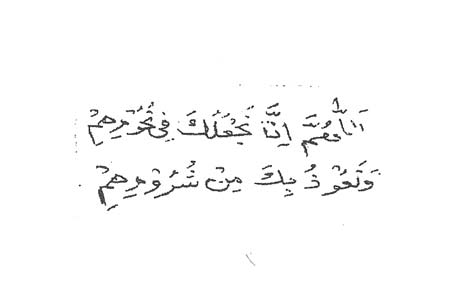 اَللّٰهُمَّ اِنَّا نَجْعَلُكَ فِيْ نُحُوْرِهِمْ
وَنَعُوْذُ بِكَ مِنْ شُرُوْرِهِمْ